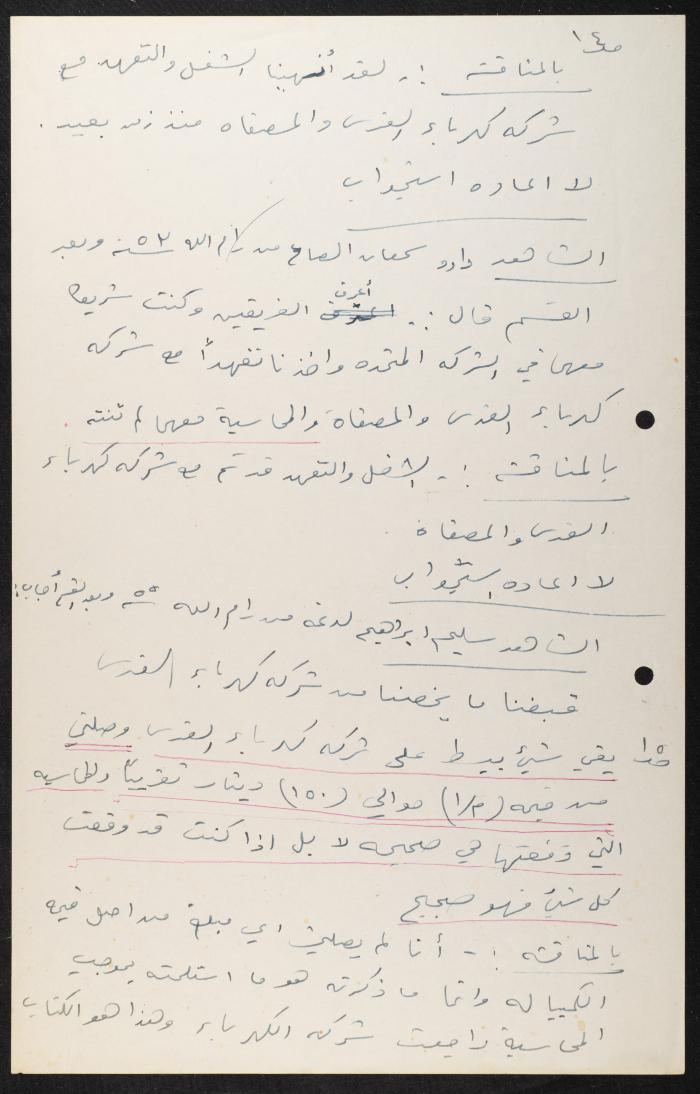 ص١٤
بالمناقشه :- لقد أنهينا الشغل والتعهد مع
شركه كهرباء القدس والمصفاه منذ زمن بعيد .
لا اعاده استجواب
الشاهد داود سمعان الصاع من رام الله ٥٢ سنه وبعد
القسم قال :- أعرف الفريقين وكنت شريكا
معهما في الشركه المتحده واخذنا تعهداً مع شركه
كهرباء القدس والمصفاة والمحاسبة معهما لم تنته
بالمناقشه :- الشغل والتعهد قد تم مع شركه كهرباء
القدس والمصفاة
لا اعاده استجواب
الشاهد سليم ابراهيم لدعه من رام الله ٥٥ سنه وبعد القسم أجاب :
قبضنا ما يخصنا من شركه كهرباء القدس
بقي شيئ بسيط على شركه كهرباء القدس وصلني
من قيمه (م/١) حوالي (١٥٠) دينار تقريباً والمحاسبه
التي وقعتها هي صحيحه لا بل اذا كنت قد وقعت
كل شيئ فهو صحيح
بالمناقشه :- أنا لم يصلني اي مبلغ من اصل قيمة
الكمبياله وانما ما ذكرته هو ما استلمته بموجب
المحاسبة راجعت شركه الكهرباء وهذا هو الكتاب